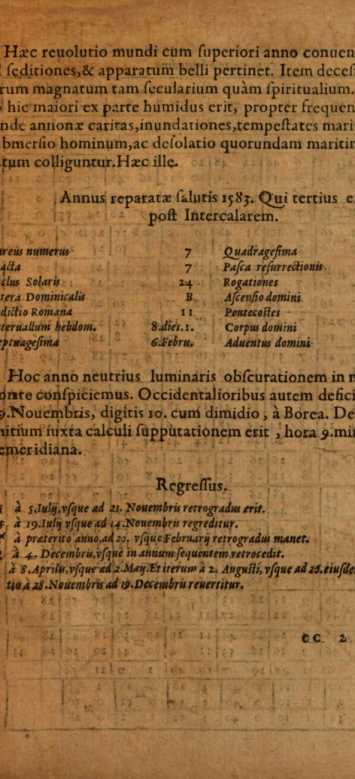 Hæc reuolutio mundi cum superiori anno conuen
seditiones,& apparatum belli pertinet. Item deces
rum magnatum tam secularium quàm spiritualium.
hic maiori ex parte humidus erit, propter frequen
nde annonæ caritas,inundationes,tempestates mari
bmersio hominum,ac desolatio quorundam maritim
tum colliguntur.Hæc ille.
Annus reparatæ salutis 1583. Qui tertius e
post Intercalarem.
ureus numerus 7 Quadragesima
acta 7 Pasca resurrectionis
clus Solaris 24 Rogationes
tera Dominicalis B Ascensio domini
dictio Romana 11 Pentecostes
teruallum hebdom. 8.dies.1. Corpus domini
eptuagesima 6.Febru. Aduentus domini
Hoc anno neutrius luminaris obscurationem in n
onte conspiciemus. Occidentalioribus autem defici
9.Nouembris, digitis 10. cum dimidio, à Borea. De
nitium iuxta calculi supputationem erit, hora 9.min
emeridiana.
Regressus.
à 5.Iulij,vsque ad 21. Nouembris retrogradus erit.
à 19.Iulij vsque ad 14.Nouembris regreditur.
à præterito anno,ad 20. vsque Februarij retrogradus manet.
à 4. Decembris,vsque in annum sequentem retrocedit.
à 8.Aprilis,vsque ad 2.May.Et iterum à 2. Augusti, vsque ad 26.eiusde
à 28.Nouembris ad 19.Decembris reuertitur.
CC 2